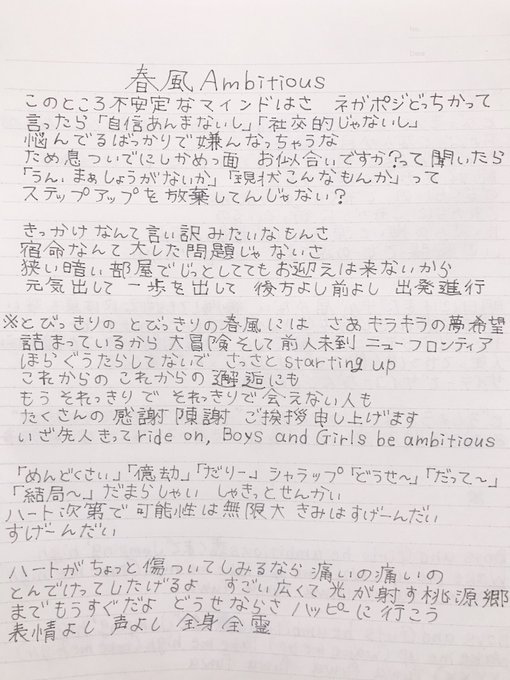 春風 Ambitious
このところ不安定なマインドはさ ネガポジどっちかって
言ったら「自信あんまないし」「社交的じゃないし」
悩んでるばっかりで嫌んなっちゃうな
ため息ついでにしかめっ面 お似合いですか?って聞いたら
「うん、まぁしょうがないか」「現状こんなもんか」って
ステップアップを放棄してんじゃない?
きっかけなんて言い訳みたいなもんさ
宿命なんて大した問題じゃないさ
狭い暗い部屋でじっとしててもお迎えは来ないから
元気出して 一歩を出して 後方よし前よし 出発進行
※とびっきりの とびっきりの春風には さあ キラキラの夢希望
詰まっているから 大冒険そして前人未到 ニューフロンティア
ほら ぐうたらしてないで さっさと starting up
これからの これからの 邂逅にも
もう それっきりで それっきりで会えない人も
たくさんの 感謝 陳謝 ご挨拶申し上げます
いざ先人きって ride on, Boys and Girls be ambitious
「めんどくさい」「億劫」「だりー」 シャラップ 「どうせ〜」「だって〜」
「結局〜」 だまらしゃい しゃきっとせんかい
ハート次第で可能性は無限大 きみはすげーんだい
すげーんだい
ハートがちょっと傷ついてしみるなら 痛いの痛いの
とんでけってしたげるよ すごい広くて光が射す桃源郷
までもうすぐだよ どうせならさ ハッピーに行こう
表情よし 声よし 全身全霊